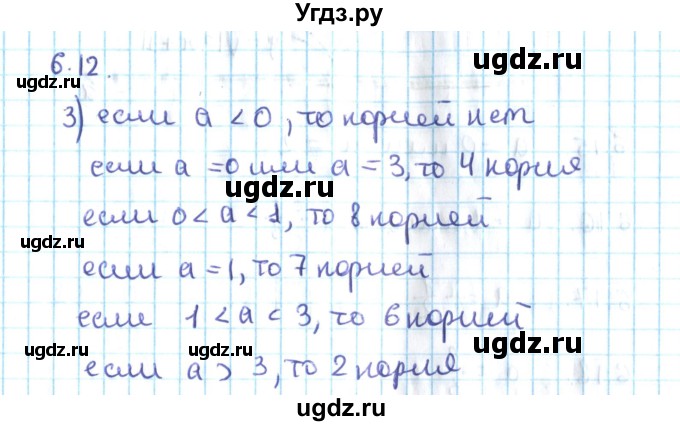 Угдз.ру
6.12.
ugdz.ru
ugdz.ru
3) если a < 0, то корней нет
если a = 0 или a = 3, то 4 корня
ugdz.ru
если 0 < a < 1, то 8 корней
ugdz.ru
ugdz.ru
если a = 1, то 7 корней
если 1 < a < 3, то 6 корней
ugdz.ru
ugdz.ru
если a > 3, то 2 корня
ugdz.ru
ugdz.ru